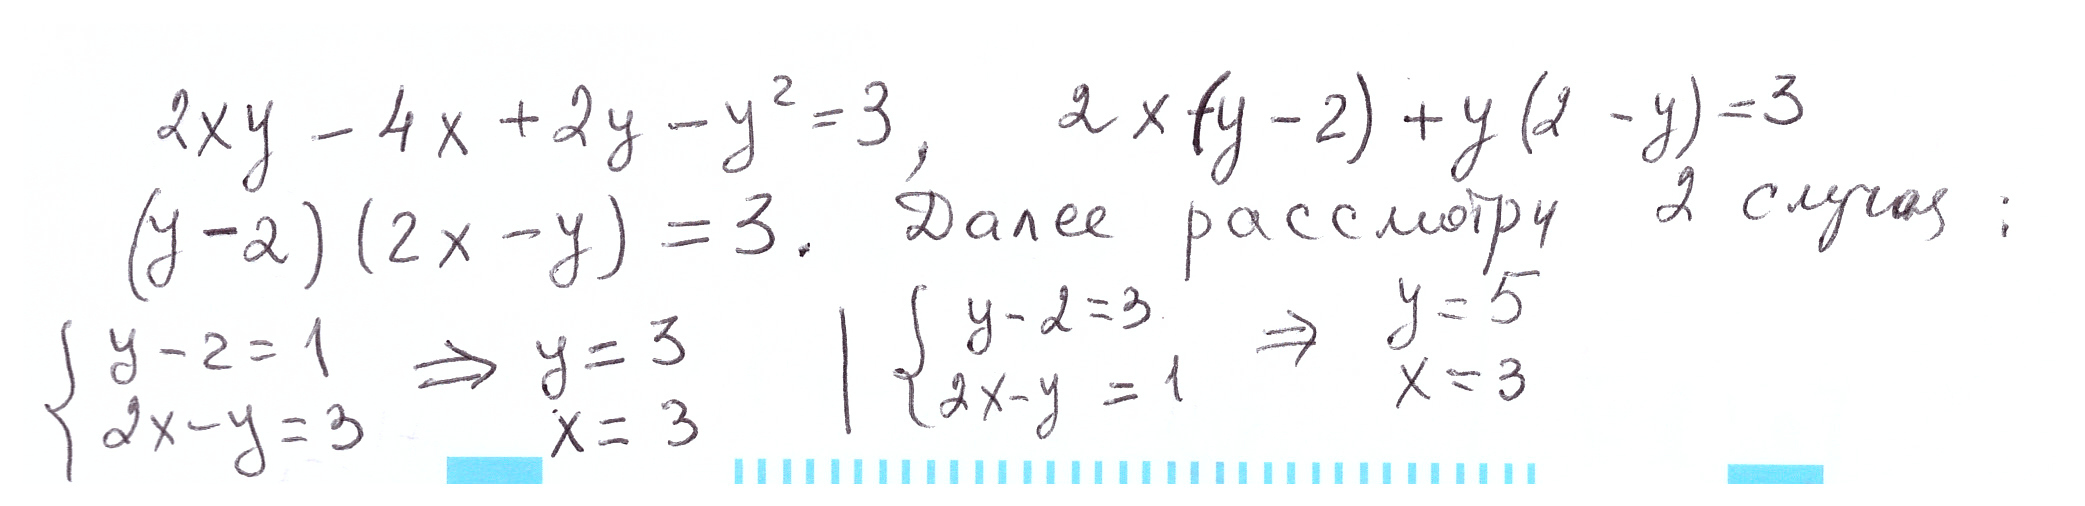 2xy - 4x + 2y - y² = 3, 2x(y - 2) + y(2 - y) = 3
(y - 2)(2x - y) = 3. Далее рассмотрим 2 случая:
{ y - 2 = 1 ⇒ y = 3 | { y - 2 = 3 ⇒ y = 5
2x - y = 3 x = 3 2x - y = 1 x = 3